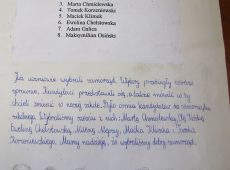 3. Marta Chmielewska
4. Tomek Korzeniowski
5. Maciek Klimek
6. Ewelina Chełstowska
7. Adam Galica
8. Maksymilian Osiński
Jak uczniowie wybrali samorząd. Wybory przebiegły
sprawnie. Kandydaci przedstawili się, mówili co
chcieli zmienić w naszej szkole. Było ośmiu kandydatów do samorządu
szkolnego. Wybraliśmy z nich: Martę Chmielewską,
Ewelinę Chełstowską, Maćka Klimka i Tomka
Korzeniowskiego. Mamy nadzieję, że wybraliśmy dobry samorząd.